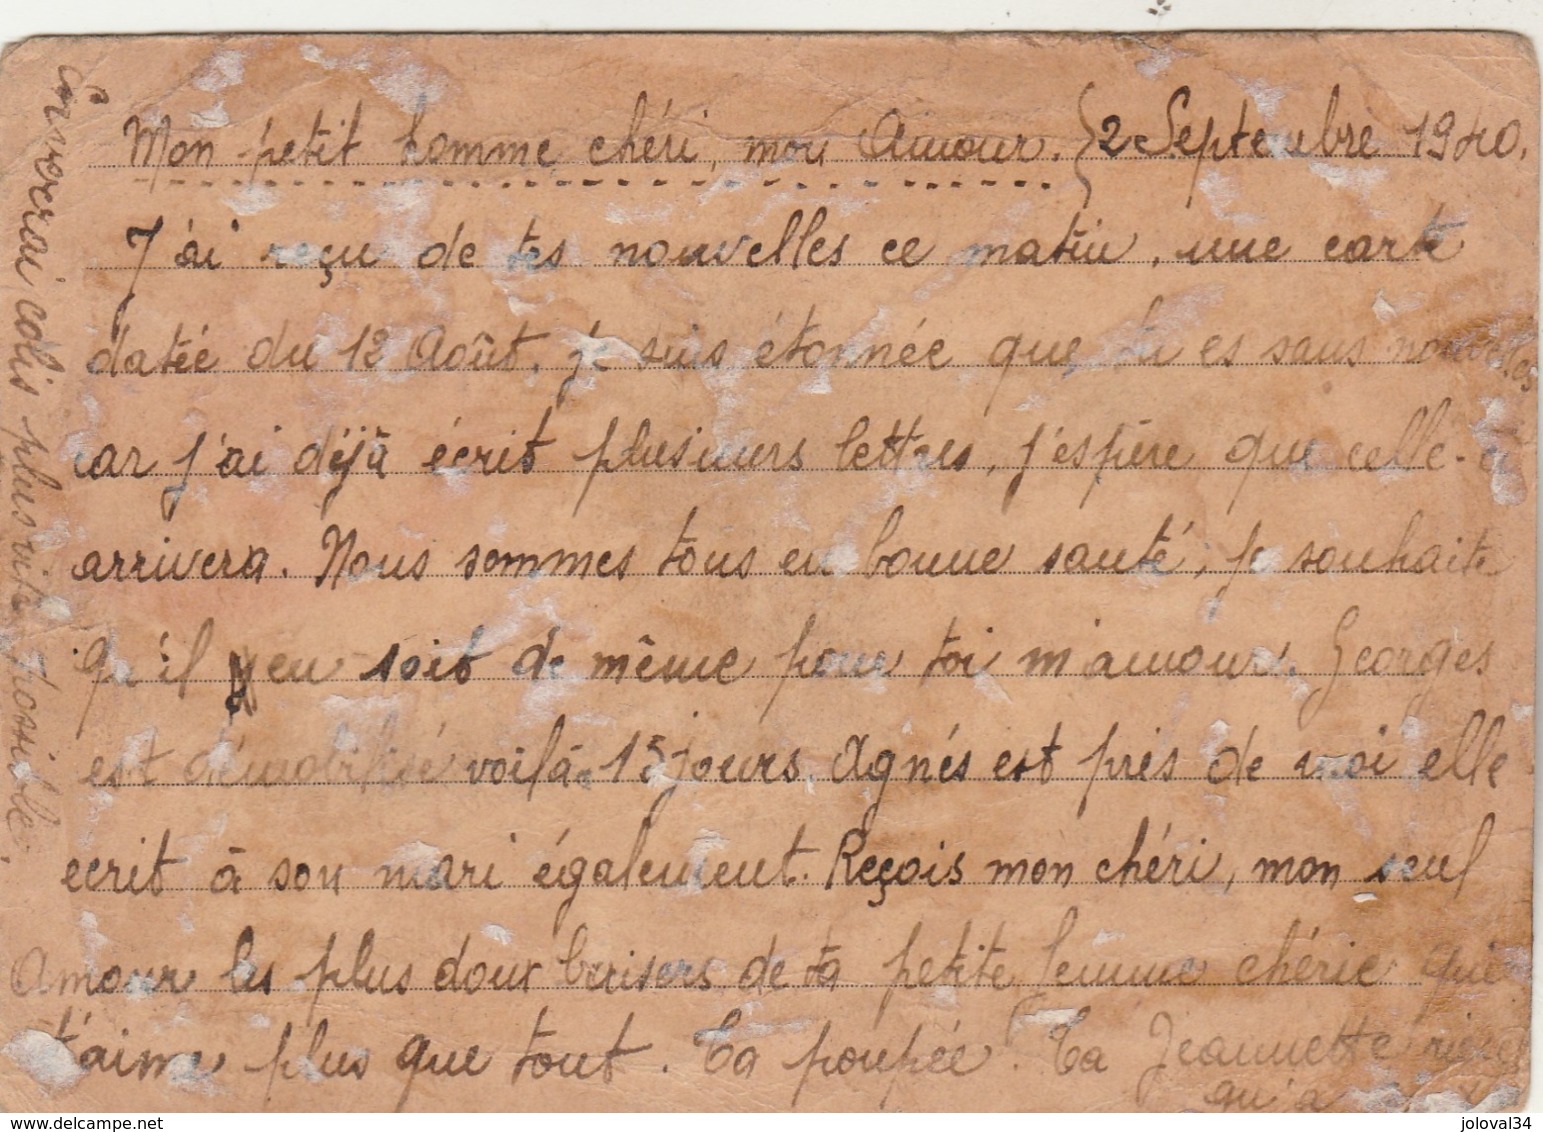 Mon petit homme chéri, mon Amour. } 2 Septembre 1940.
J'ai reçu de tes nouvelles ce matin, une carte
datée du 12 Août, je suis étonnée que tu es sans nouvelles
car j'ai déjà écrit plusieurs lettres, j'espère que celle-ci
arrivera. Nous sommes tous en bonne santé, je souhaite
qu'il en soit de même pour toi m'amour. Georges
est démobilisé voilà 15 jours. Agnés est près de moi elle
ecrit à son mari également. Reçois mon chéri, mon seul
Amour les plus doux baisers de ta petite femme chérie qui
t'aime plus que tout. Ta poupée. Ta Jeannette rien
qu'a
Enverrai colis plus vite possible.
delcampe.net
joloval34